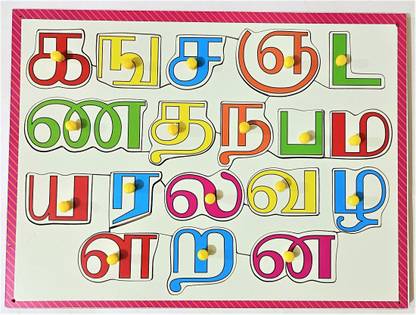 க ங ச ஞ ட
ண த ந ப ம
ய ர ல வ ழ
ள ற ன